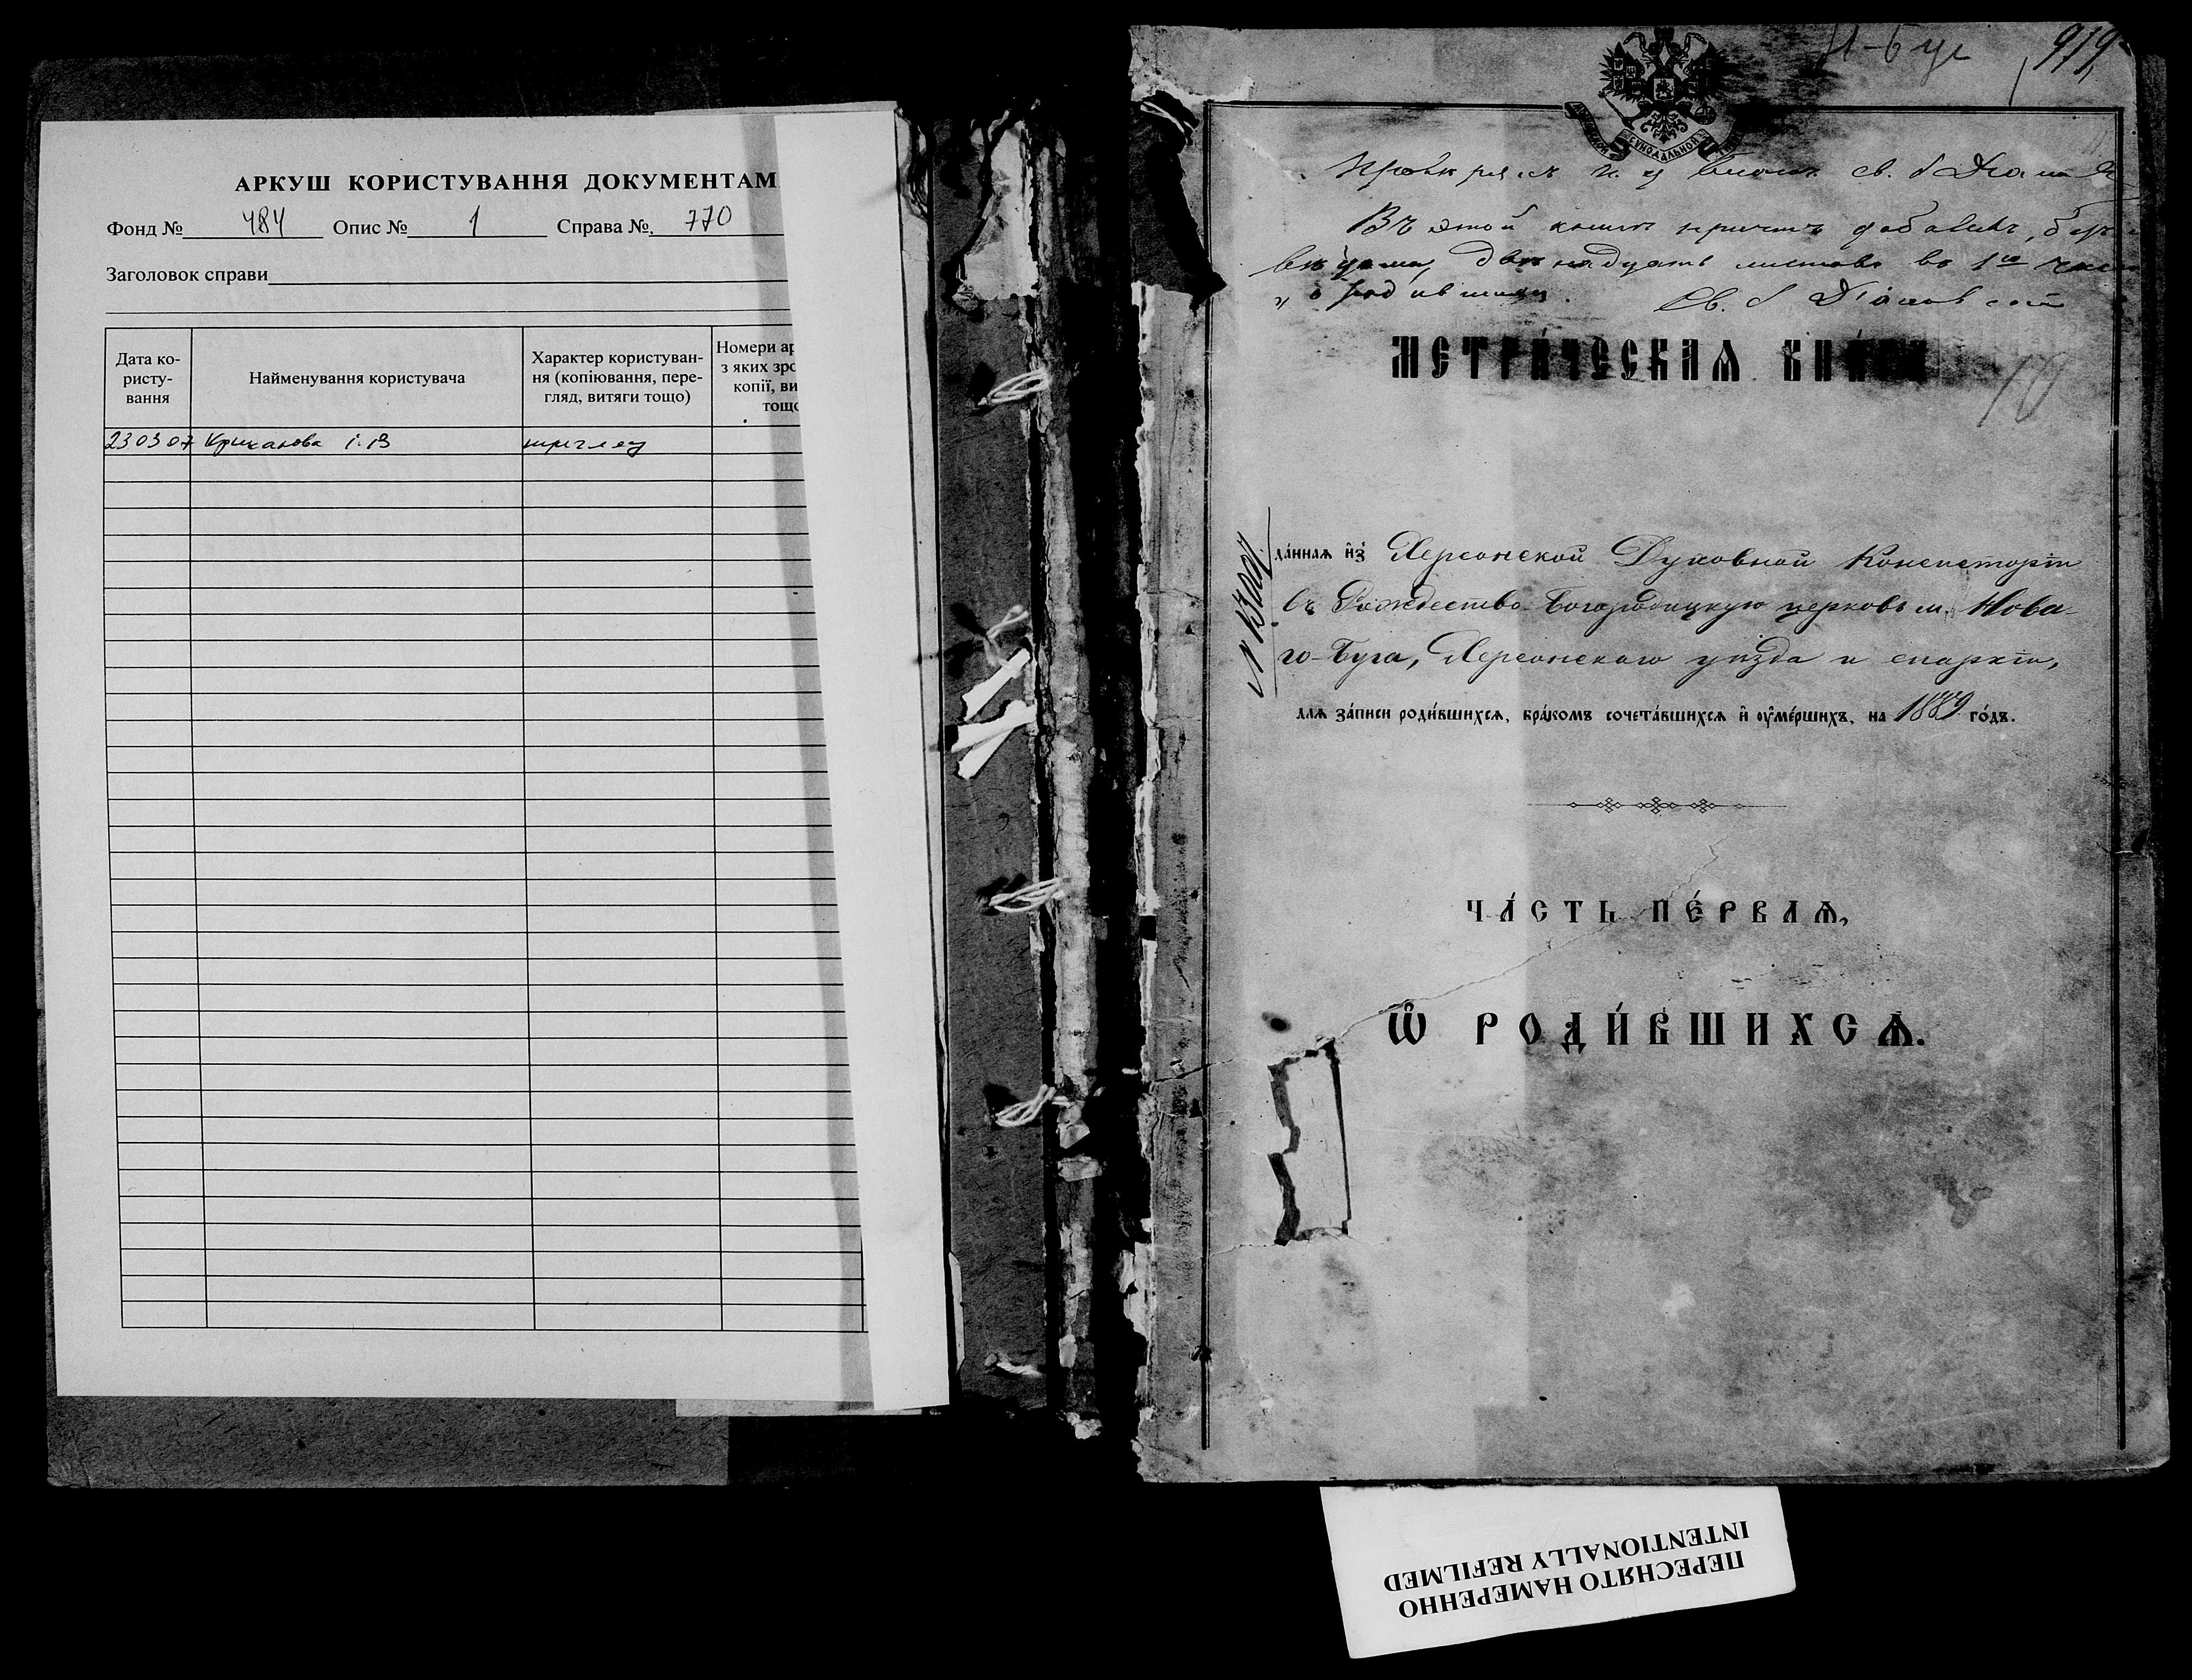 АРКУШ КОРИСТУВАННЯ ДОКУМЕНТАМ
Фонд № 484 Опис № 1 Справа № 770
Заголовок справи
Дата ко-
ристу-
вання
Найменування користувача
Характер користуван-
ня (копіювання, пере-
гляд, витяги тощо)
Номери ар
з яких зро
копії, ви
тощо
23 03 07 Крижанова І.В перегляд
Н-Буг 919
СѴНОДАЛЬНОЙ
св.
Въ этой книгѣ причтъ добавилъ,
двенадцать листовъ въ 1ю
"о родившихся". Св.
МЕТРИ́ЧЕСКАѦ КНИ́ГА
10
№ 13007
да́ннаѧ и҆з̾ Херсонской Духовной Консисторіи
въ Рождество-Богородицкую церковь м. Нова-
го-Буга, Херсонскаго уѣзда и епархіи,
длѧ за́писи роди́вшихсѧ, бра́комъ сочета́вшихсѧ и҆ оу҆ме́ршихъ, на 1889 го́дъ.
ЧА́СТЬ ПЕ́РВАѦ,
Ѽ РОДИ́ВШИХСѦ.
ПЕРЕСНЯТО НАМЕРЕННО
INTENTIONALLY REFILMED